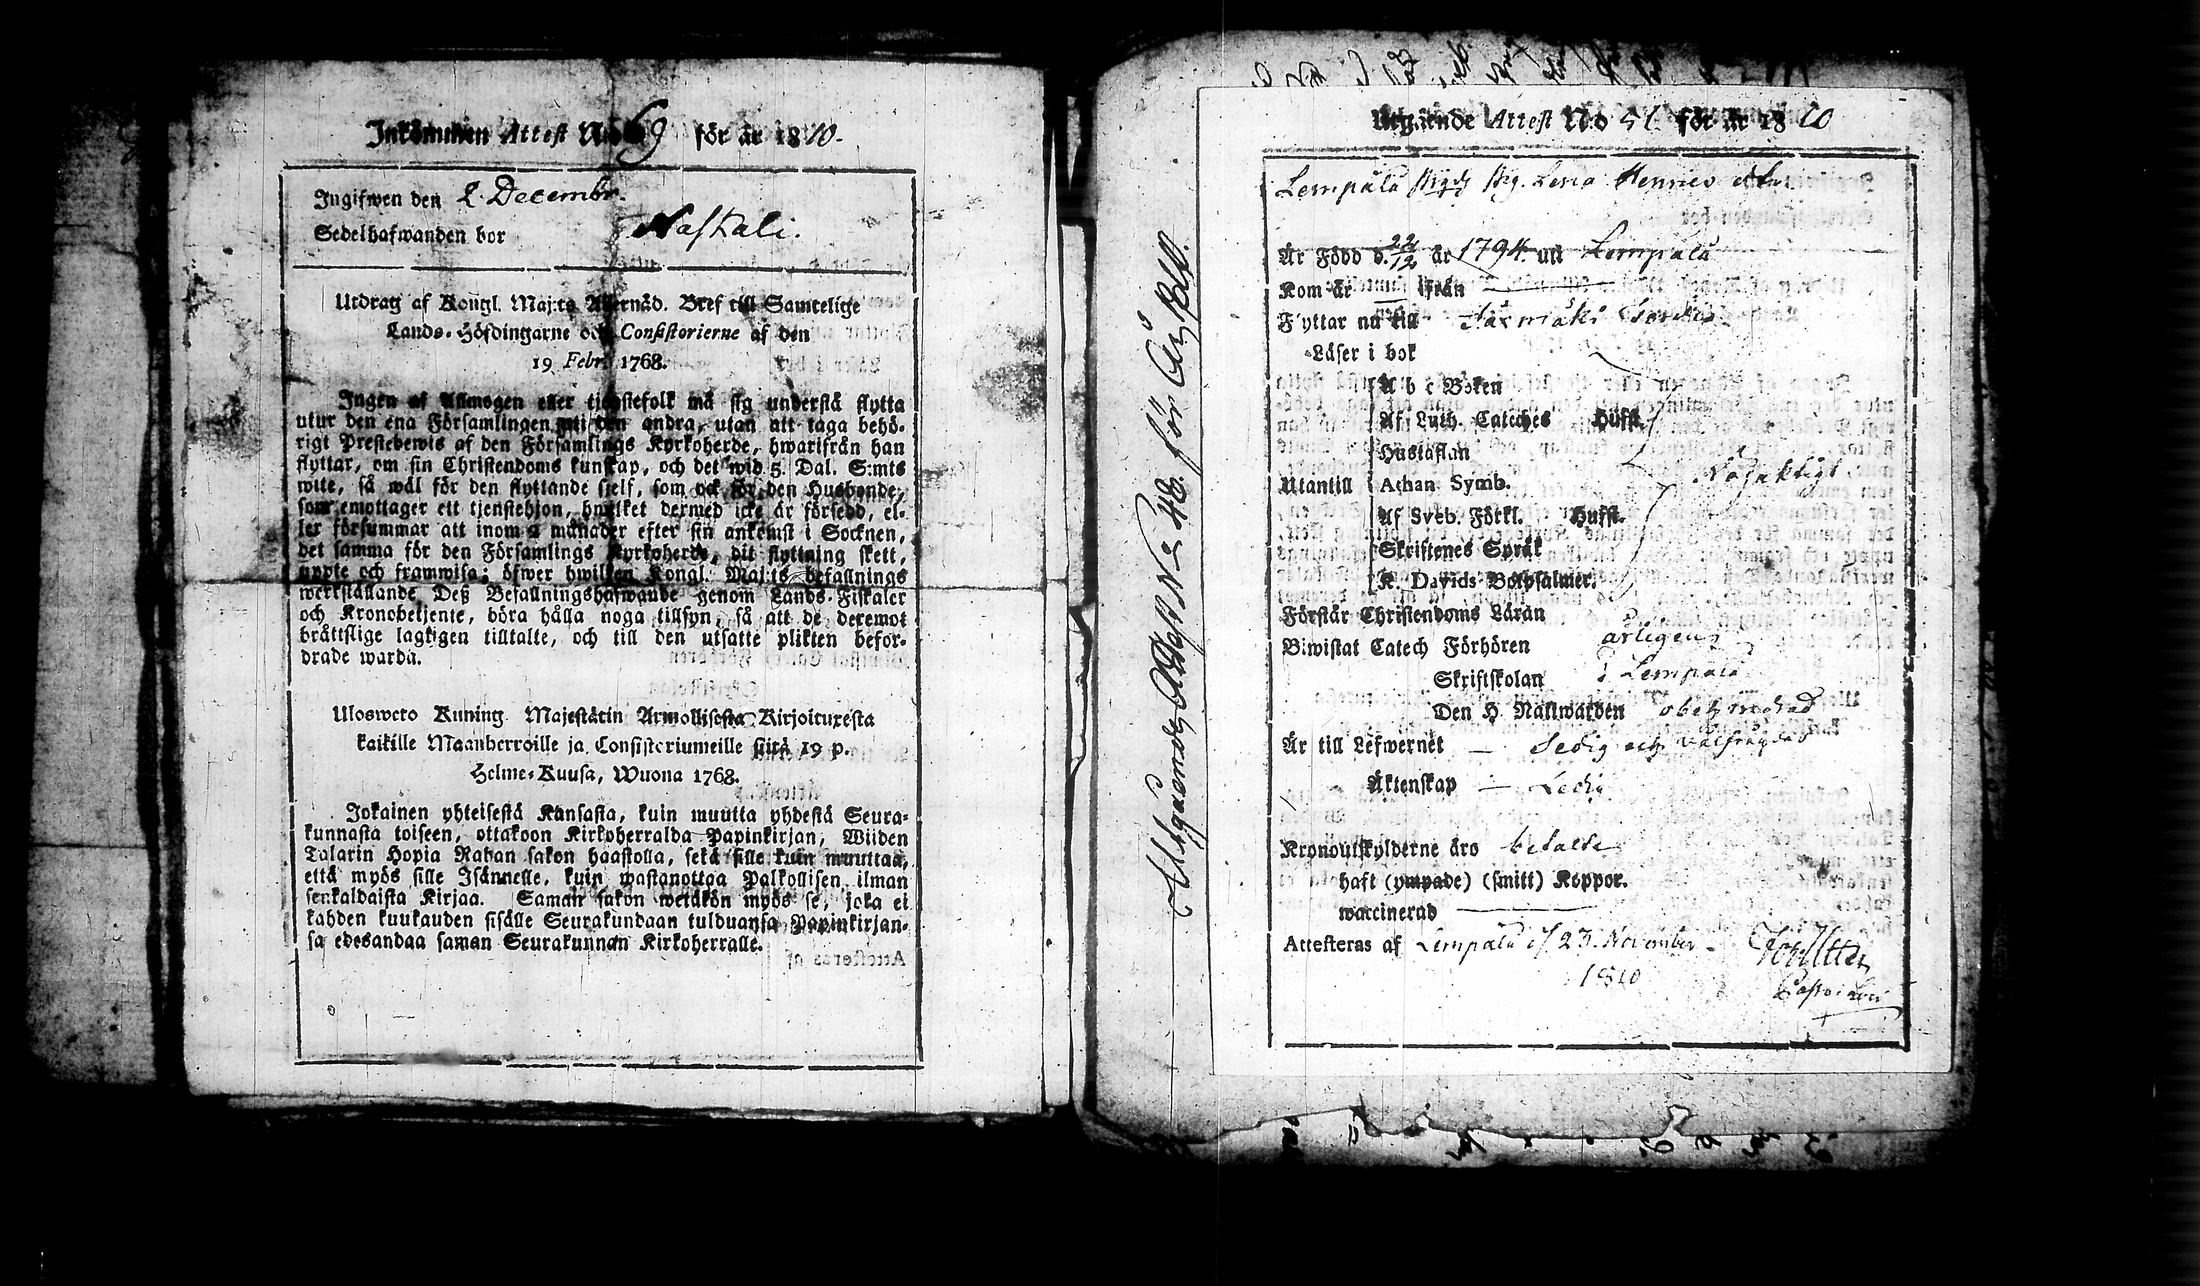 Inkommen Attest N:o 69 för år 1810.
Ingifwen den 2 Decembr.
Sedelhafwanden bor Naskali.
Utdrag af Kongl. Maj:ts Allernåd. Bref till Samtelige
Lands-Höfdingarne och Consistorierne af den
19 Febr. 1768.
Ingen af Allmogen eller tjenstefolk må sig understå flytta
utur den ena Församlingen uti den andra, utan att taga behö-
rigt Prestebewis af den Församlings Kyrkoherde, hwarifrån han
flyttar, om sin Christendoms kunskap, och det wid 5 Dal. S:mts
wite, så wäl för den flyttande sjelf, som ock för den Husbonde,
som emottager ett tjenstehjon, hwilket dermed icke är försedd, el-
ler försummar att inom 2 månader efter sin ankomst i Socknen,
det samma för den Församlings Kyrkoherde, dit flyttning skett,
uppte och framwisa; öfwer hwilken Kongl. Maj:ts befallnings
werkställande Deß Befallningshafwande genom Lands-Fiskaler
och Kronobetjente, böra hålla noga tillsyn, så att de deremot
bråttslige lagligen tilltalte, och till den utsatte plikten befor-
drade warda.
Ulosweto Kuning. Majestätin Armollisesta Kirjoituxesta
kaikille Maanherroille ja Consistoriumeille siitä 19 p.
Helme-Kuusa, Wuona 1768.
Jokainen yhteisestä Kansasta, kuin muutta yhdestä Seura-
kunnasta toiseen, ottakoon Kirkoherralda Papinkirjan, Wiiden
Talarin Hopia Rahan sakon haastolla, sekä sille kuin muuttaa,
että myös sille Isännelle, kuin wastanottaa Palkollisen ilman
senkaldaista Kirjaa. Saman sakon wetäkön myös se, joka ei
kahden kuukauden sisälle Seurakundaan tulduansa Papinkirjan-
sa edesandaa saman Seurakunnan Kirkoherralle.
Utgående Attest N:o 48 för
Utgående Attest N:o 51 för år 1810
Lempälä Pig. Lena Henrics
Är Född d. 22/12 år 1794 uti Lempälä
Kom år ifrån
Flyttar nu till
Läser i bok
A b c Boken
Af Luth. Cateches Hufst.
Hustaflan
Utantill Athan Symb.
Af Sveb. Förkl. Hufst.
Skriftenes Språk
K. Davids Botpsalmer.
Någaktigt
Förstår Christendoms Läran
Biwistat Catech Förhören årligen
Skriftskolan i Lempälä
Den H. Nattwarden obehindrad
Är till Lefwernet — Sedig och välfrägdad
Äktenskap — Ledig
Kronoutskylderne äro betalte
haft (ympade) (smitt) Koppor.
waccinerad
Attesteras af Lempälä d. 23 November
1810